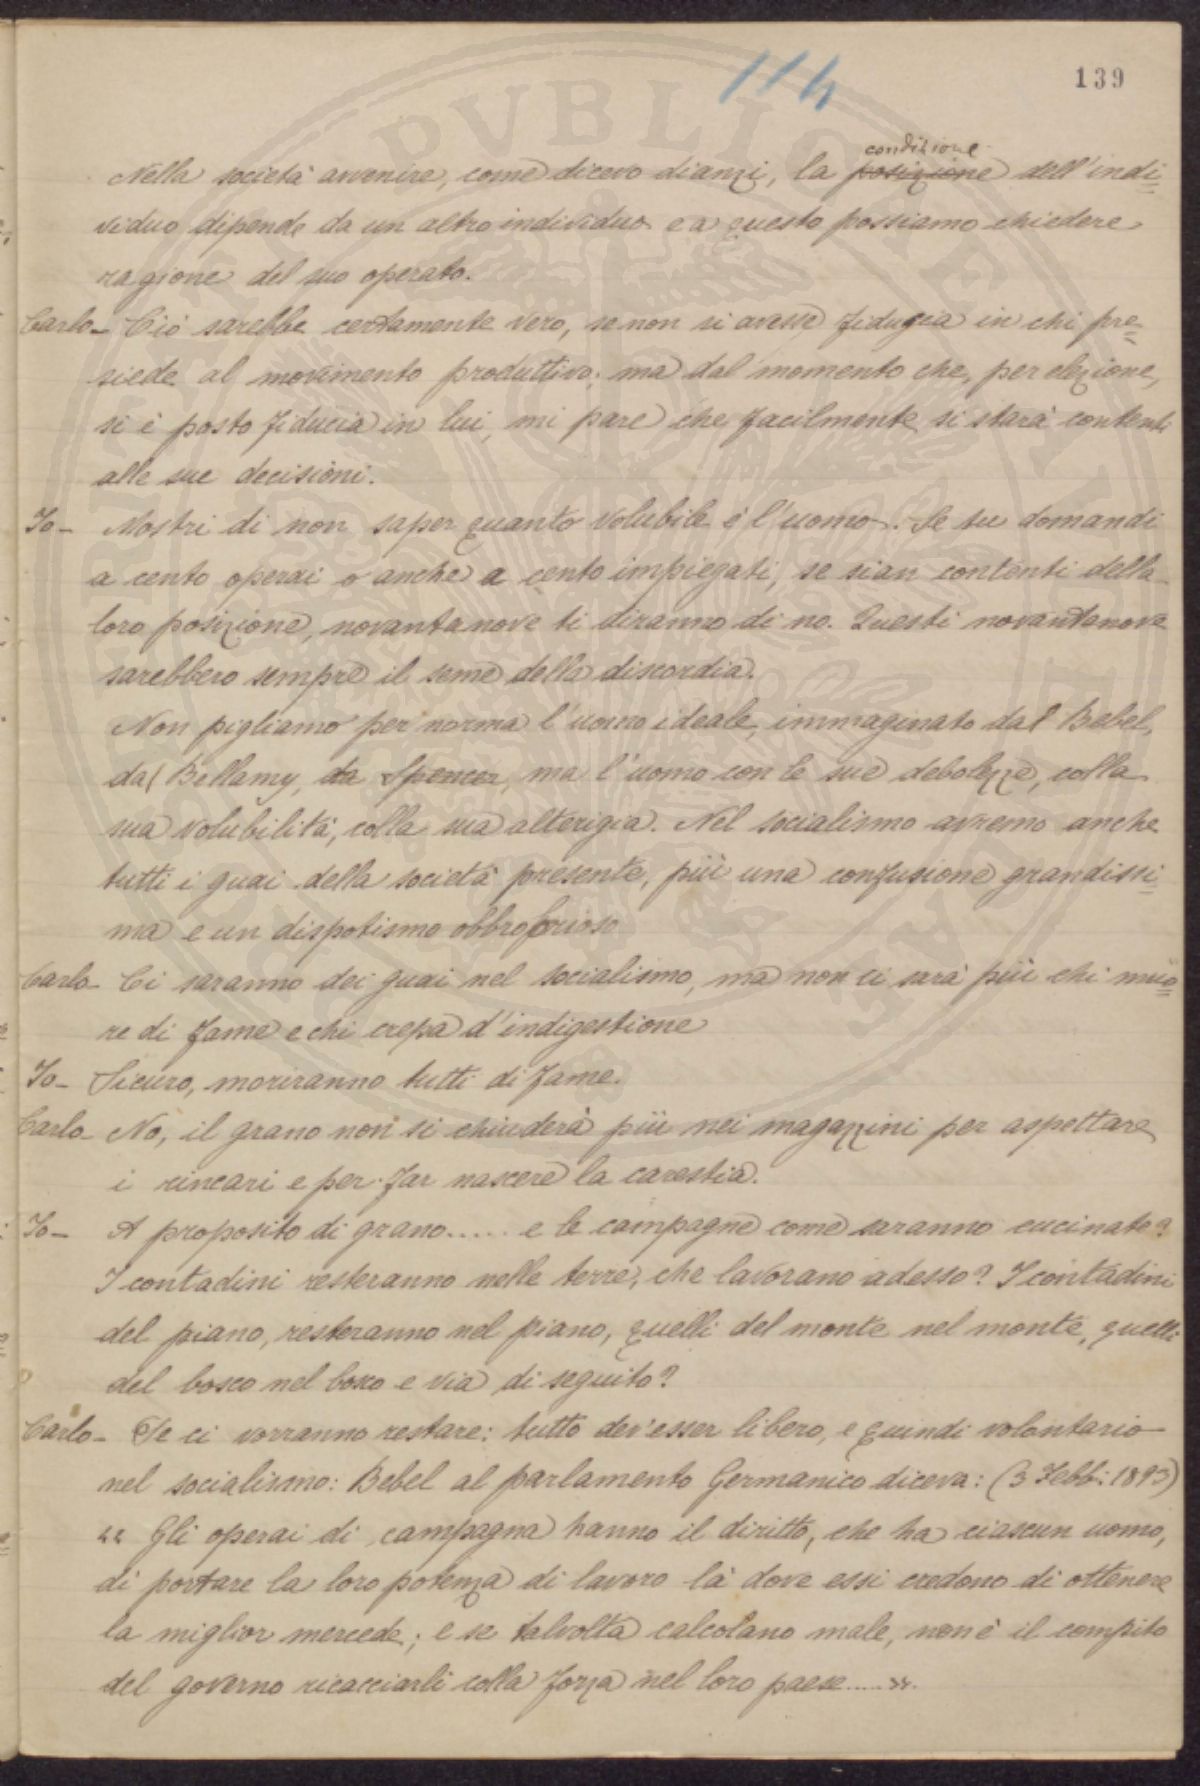 114
139
condizione
Nella società avvenire, come dicevo dianzi, la posizione dell'indi=
viduo dipende da un altro individuo e a questo possiamo chiedere
ragione del suo operato.
Carlo- Ciò sarebbe certamente vero, se non si avesse fiducia in chi pre=
siede al movimento produttivo; ma dal momento che, per elezione,
si è posto fiducia in lui, mi pare che facilmente si starà contenti
alle sue decisioni.
Io- Mostri di non saper quanto volubile è l'uomo. Se tu domandi
a cento operai o anche a cento impiegati, se sian contenti della
loro posizione, novantanove ti diranno di no. Questi novantanove
sarebbero sempre il seme della discordia.
Non pigliamo per norma l'uomo ideale, immaginato dal Bebel,
dal Bellamy, da Spencer, ma l'uomo con le sue debolezze, colla
sua volubilità, colla sua alterigia. Nel socialismo avremo anche
tutti i guai della società presente, più una confusione grandissi=
ma e un dispotismo obbrobrioso
Carlo- Ci saranno dei guai nel socialismo, ma non ci sarà più chi muo=
re di fame e chi crepa d'indigestione
Io- Sicuro, moriranno tutti di fame.
Carlo- No, il grano non si chiuderà più nei magazzini per aspettare
i rincari e per far nascere la carestia.
Io- A proposito di grano..... e le campagne come saranno cucinate?
I contadini resteranno nelle terre, che lavorano adesso? I contadini
del piano, resteranno nel piano, quelli del monte nel monte, quelli
del bosco nel bosco e via di seguito?
Carlo- Se ci vorranno restare: tutto dev'esser libero, e quindi volontario
nel socialismo: Bebel al parlamento Germanico diceva: (3 Febb: 1893)
« Gli operai di campagna hanno il diritto, che ha ciascun uomo,
di portare la loro potenza di lavoro là dove essi credono di ottenere
la miglior mercede; e se talvolta calcolano male, non è il compito
del governo ricacciarli colla forza nel loro paese.....».
PUBLIC